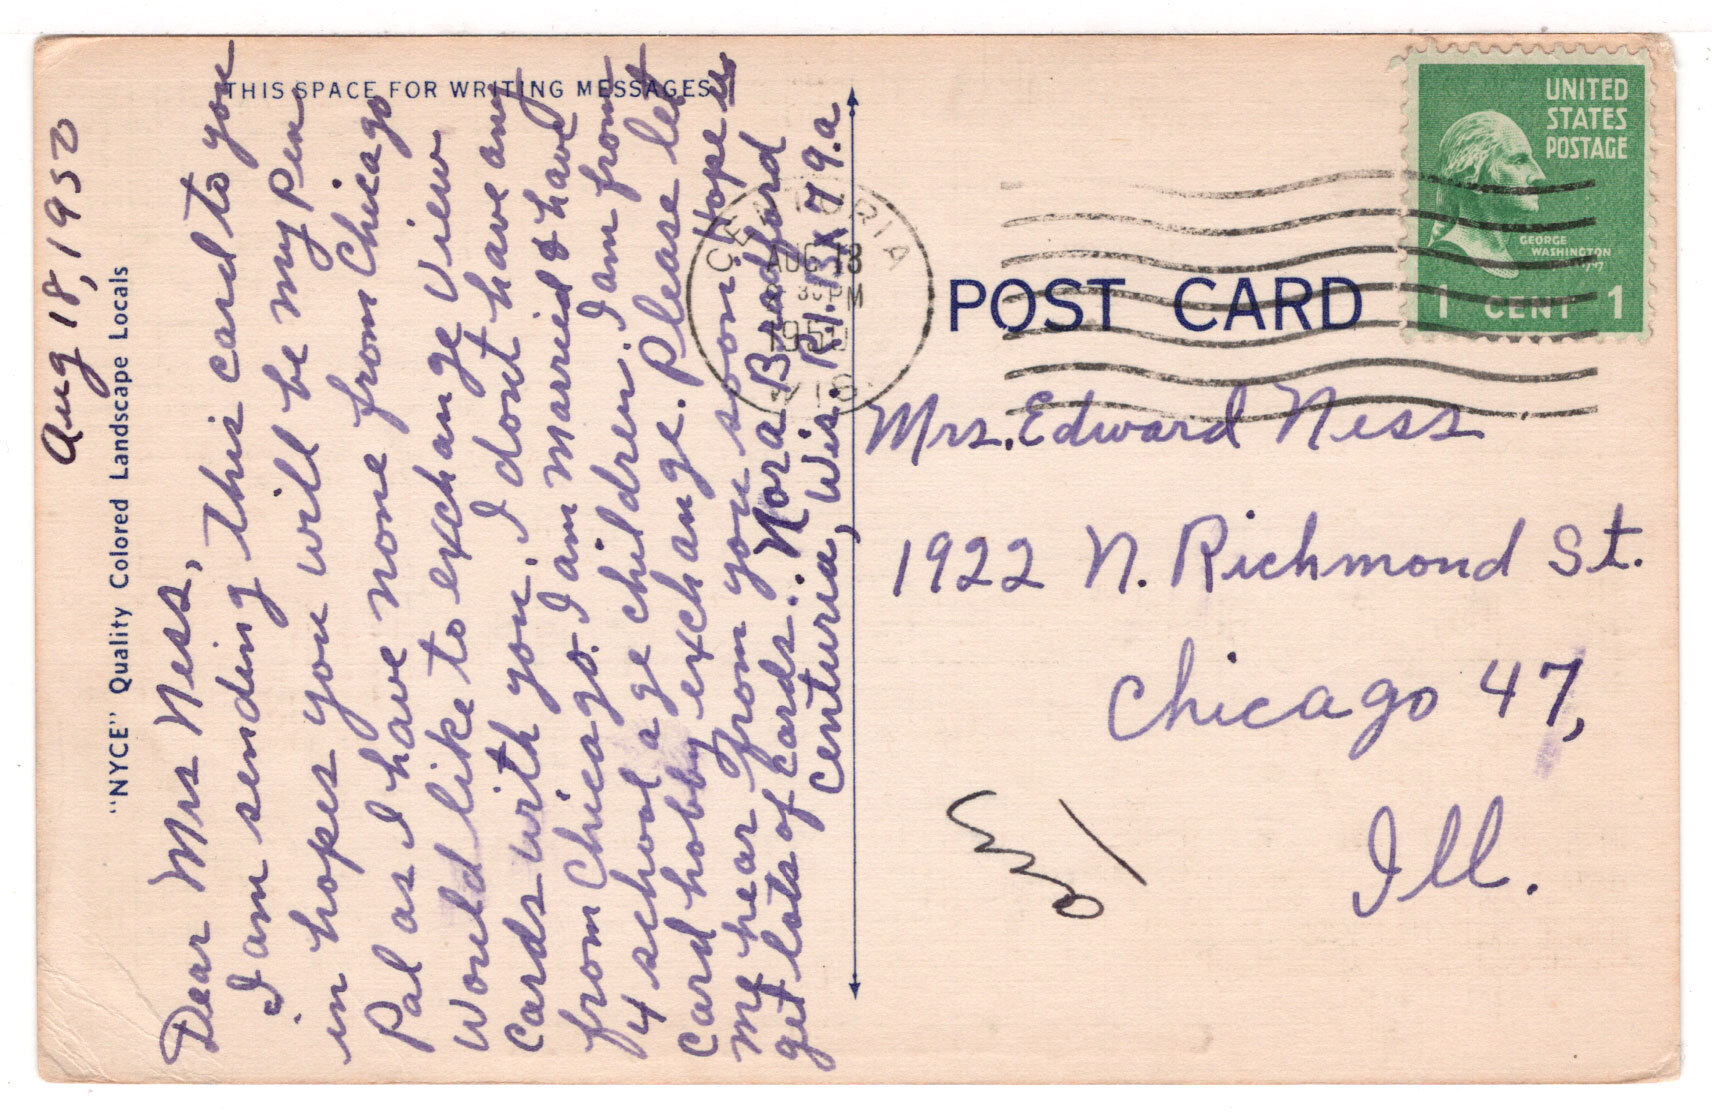 THIS SPACE FOR WRITING MESSAGES
"NYCE" Quality Colored Landscape Locals
Aug 18, 1950
Dear Mrs Ness,
I am sending this card to you
in hopes you will be my Pen
Pal as I have none from Chicago
Would like to exchange View
Cards with you. I dont have any
from Chicago. I am married & have
4 school age children. I am from
Card hobby exchange. Please let
me hear from you soon. Hope u
get lots of cards. Nora Bradford
Centuria, Wis. R.1. BX 79.a
CENTURIA
AUG 18
PM
1950
WIS.
UNITED
STATES
POSTAGE
GEORGE
WASHINGTON
1 CENT 1
POST CARD
Mrs. Edward Ness
1922 N. Richmond St.
Chicago 47,
Ill.